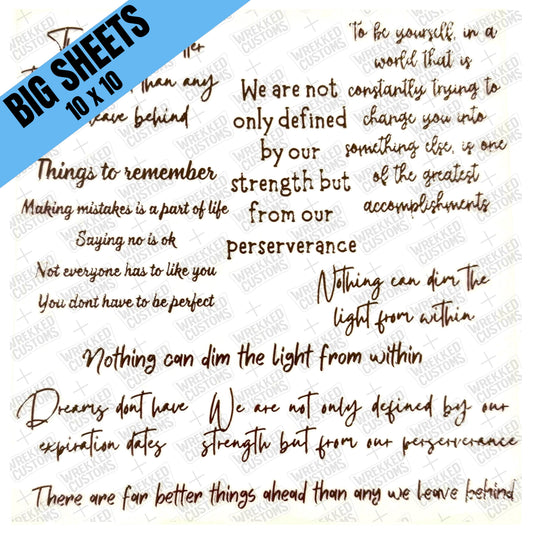 BIG SHEETS
10 X 10
than any
leave behind
Things to remember
Making mistakes is a part of life
Saying no is ok
Not everyone has to like you
You dont have to be perfect
We are not
only defined
by our
strength but
from our
perserverance
To be yourself, in a
world that is
constantly trying to
change you into
something else, is one
of the greatest
accomplishments
Nothing can dim the
light from within
Nothing can dim the light from within
Dreams dont have
expiration dates
We are not only defined by our
strength but from our perserverance
There are far better things ahead than any we leave behind
WREKKED
CUSTOMS